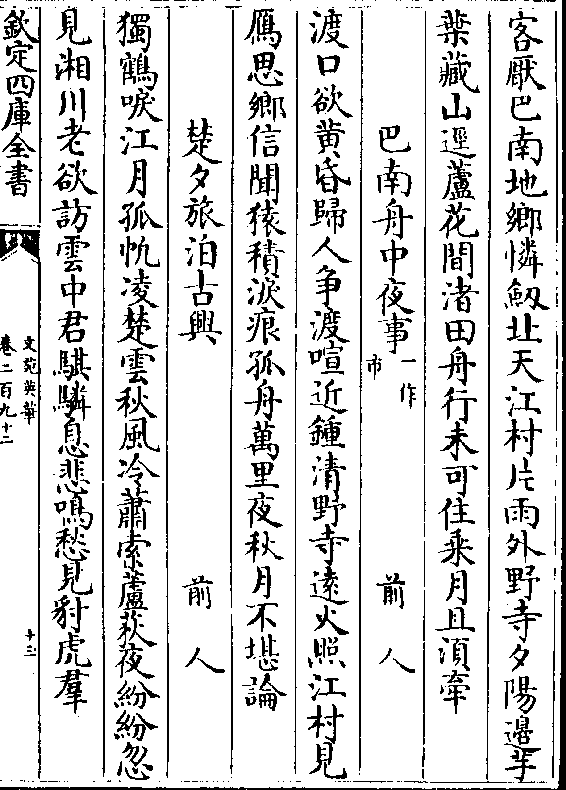 客厭巴南地鄉憐劔北天江村片雨外野寺夕陽邉芋
葉藏山逕蘆花間渚田舟行未可住乗月且湏牽
巴南舟中夜事一作市 前人
渡口欲黄昏歸人争渡喧近鍾清野寺逺火照江村見
鴈思鄉信聞猿積淚痕孤舟萬里夜秋月不堪論
楚夕旅泊古興 前人
獨鶴唳江月孤帆凌楚雲秋風冷蕭索蘆荻夜紛紛忽
見湘川老欲訪雲中君騏驎息悲鳴愁見豺虎羣
欽定四庫全書
文苑英華
卷二百九十二
十三